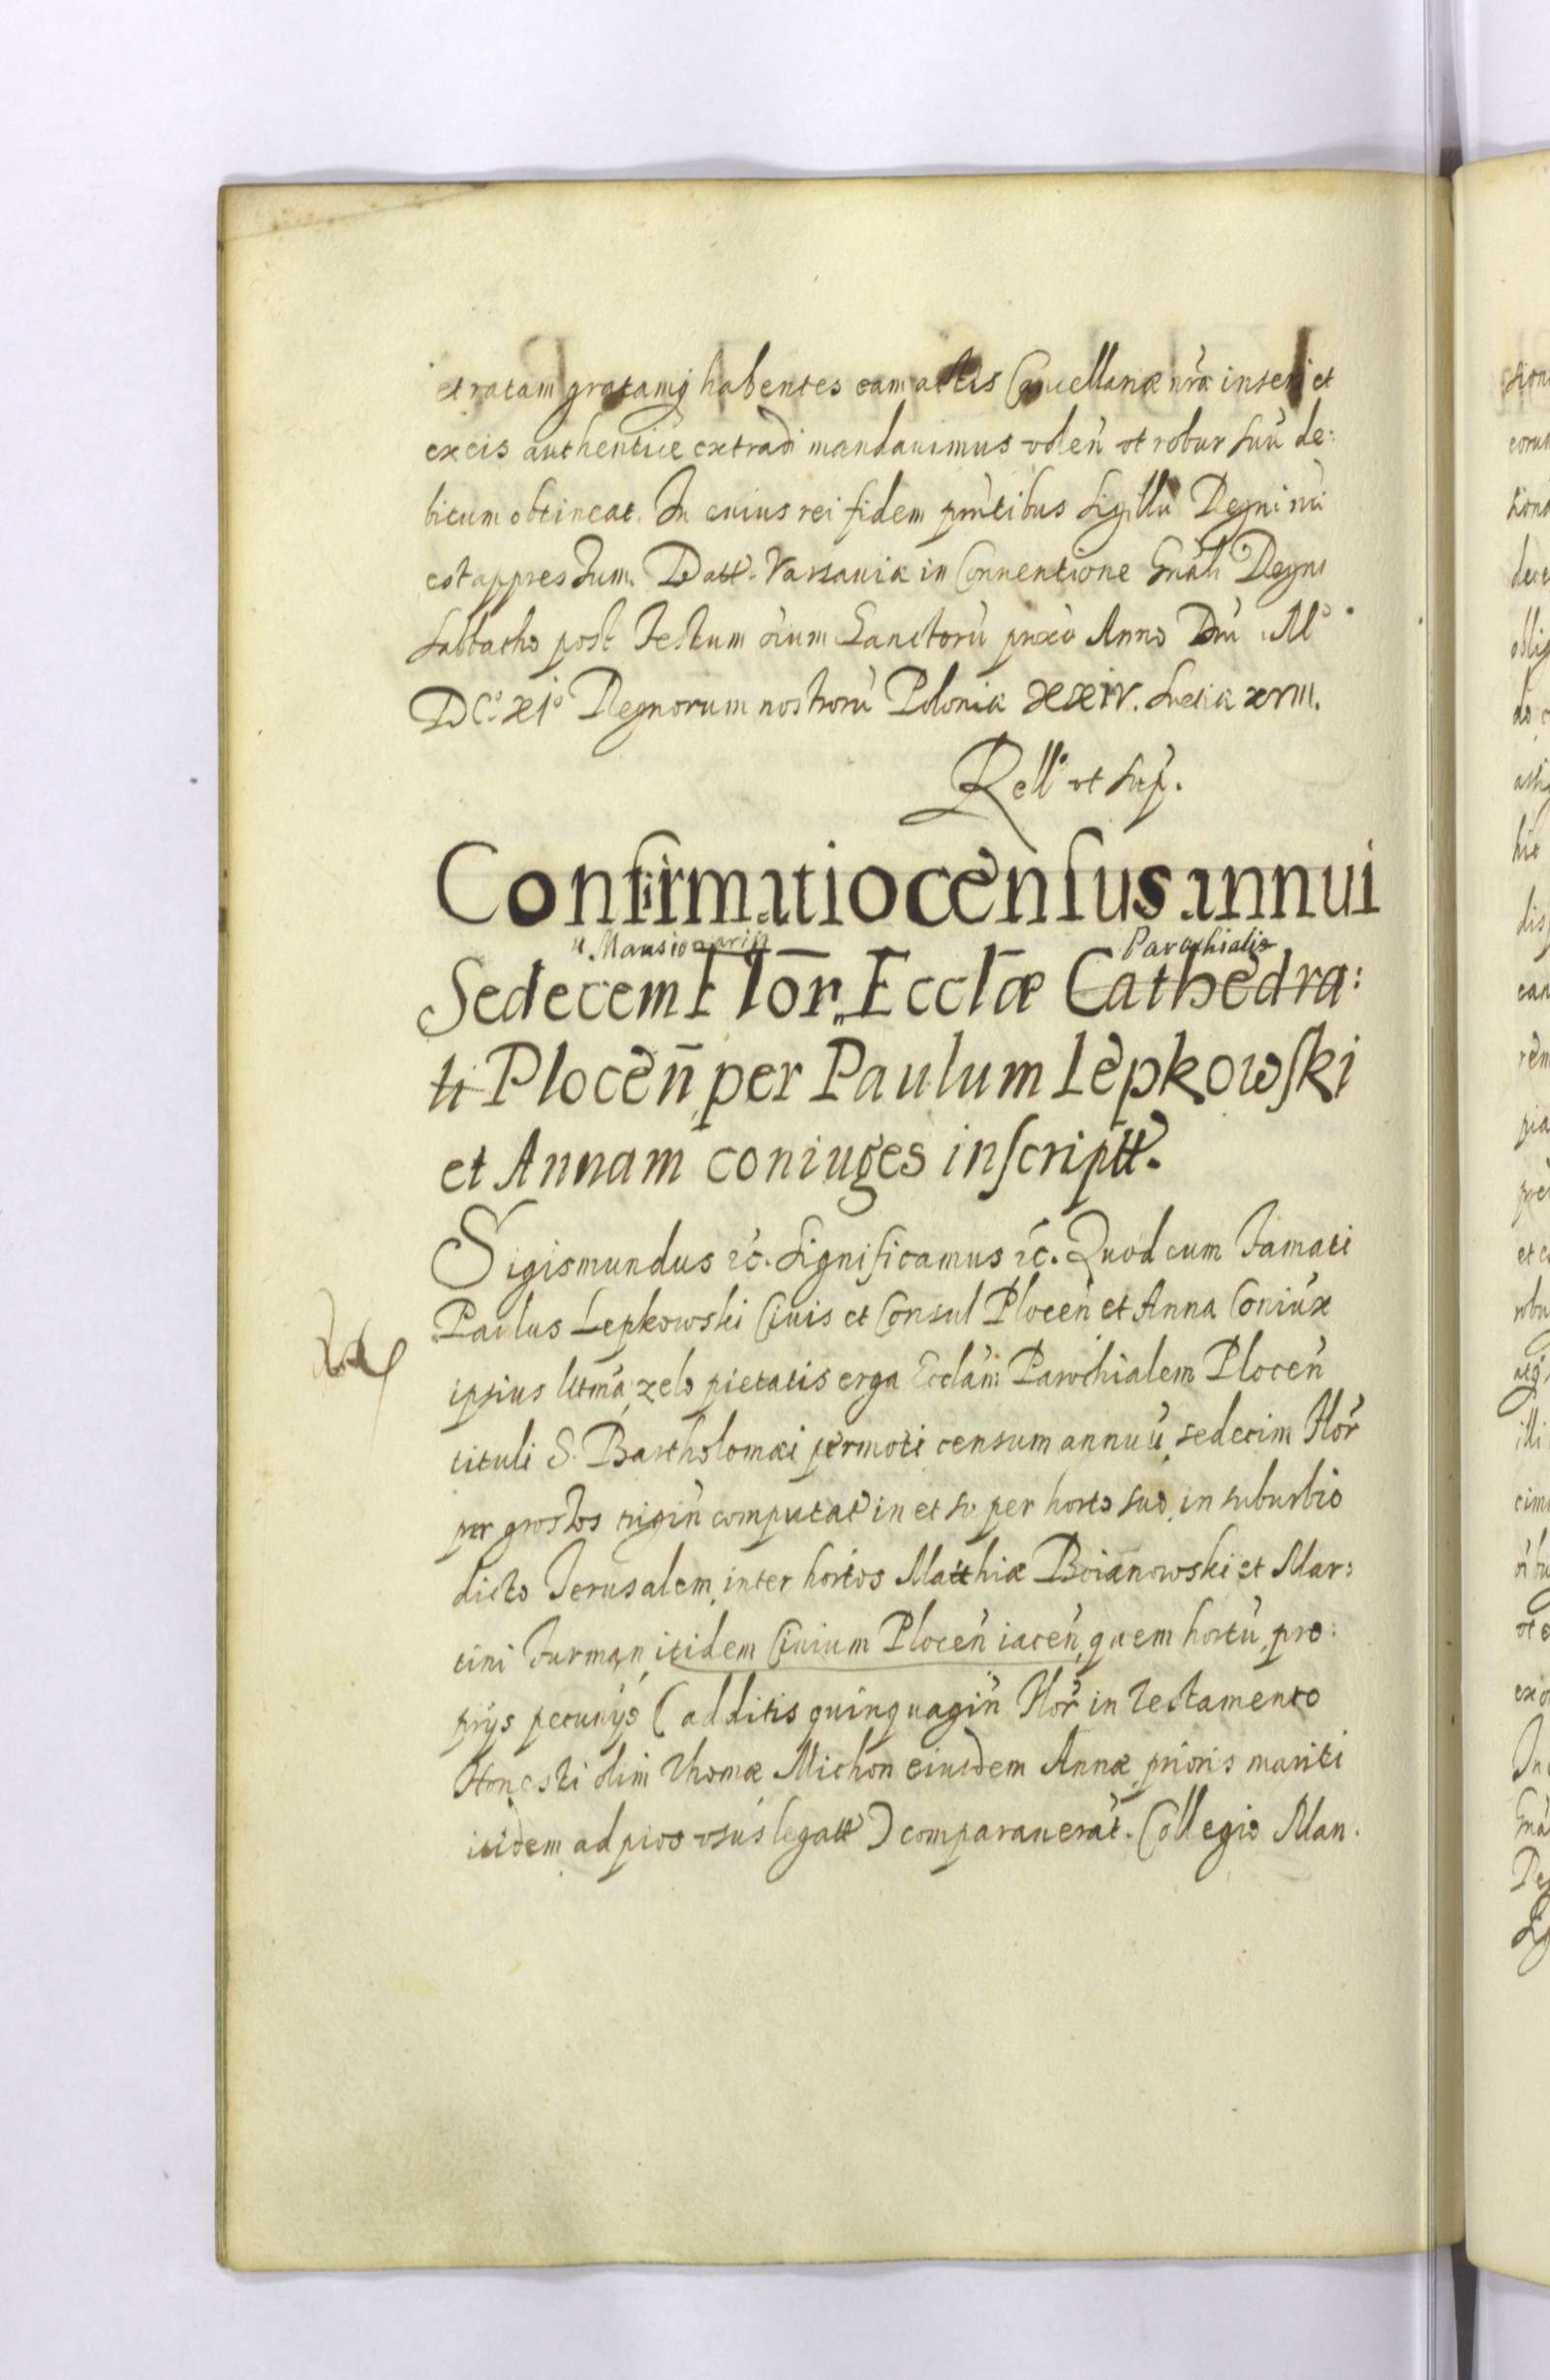 et ratam gratamq̃ habentes eam actis Cancellariæ nr̃æ inseri et
ex eis authentice extradi mandauimus volen̄ vt robur suũ de:
bitum obtineat. In cuius rei fidem pn̄tibus Sigillũ Regni nr̃i
est appressum. Datt. Varsauiæ in Conuentione Gn̄ali Regni
Sabbatho post Festum õium Sanctorũ pxo Anno Dn̄i Mº
DCº XIº Regnorum nostrorũ Poloniæ XXIV. Sueciæ XVIII.
Rellº vt sup̃.
Confirmatio censũs annui
Mansionarijs Parochialis
Sedecem Flor̄. Eccl̄æ Cathedra:
li Plocen̄ per Paulum Lepkowski
et Annam coniuges inscriptt.
Sigismundus &c. Significamus &c. Quod cum Famati
Paulus Lepkowski Ciuis et Consul Plocen̄ et Anna Coniux
ipsius ltm̄a, zelo pietatis erga Eccl̄am Parochialem Plocen̄
tituli S. Bartholomæi permoti censum annuũ, sedecim Flor̄
per grossos trigin̄ computat in et super horto suo, in suburbio
dicto Jerusalem, inter hortos Matthiæ Boianowski et Mar:
tini Furman, itidem Ciuium Plocen̄ iacen̄, quem hortũ, pro:
prijs pecunijs (additis quinquagin̄ Flor̄ in testamento
Honesti olim Thomæ Michon eiusdem Annæ prioris mariti
itidem ad pios vsus legatt) comparauerãt. Collegio Man.